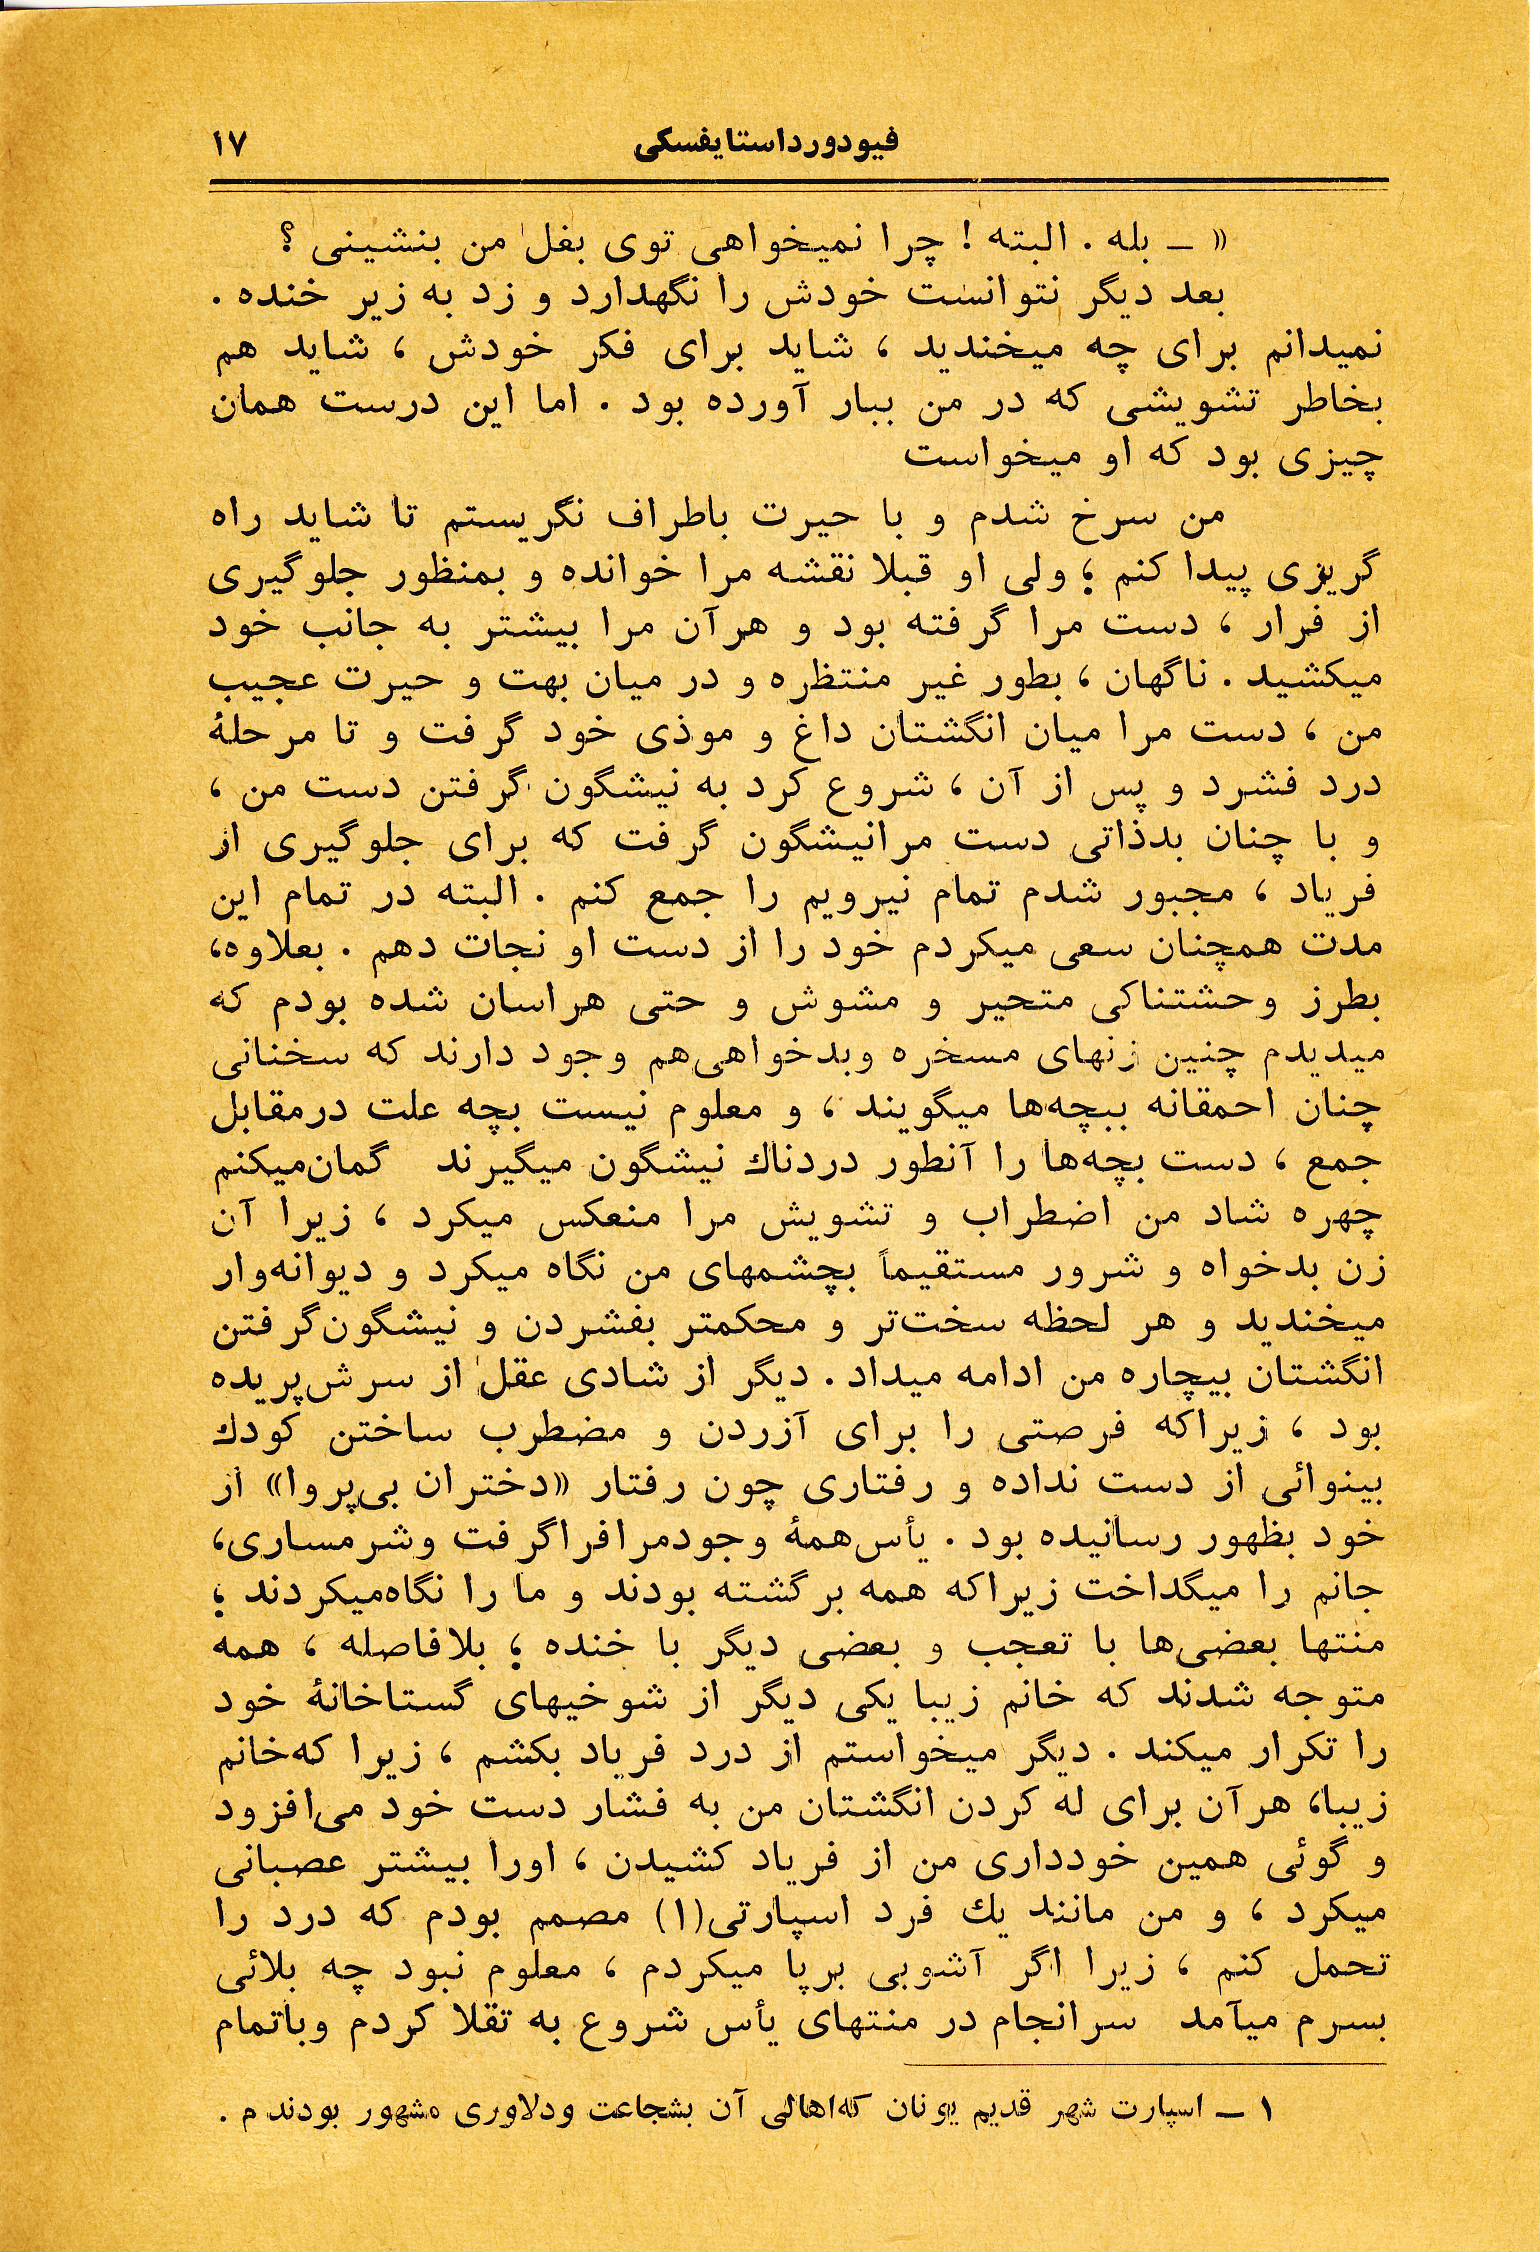 فیودورداستایفسکی ۱۷
« ــ بله . البته ! چرا نمیخواهی توی بغل من بنشینی ؟
بعد دیگر نتوانست خودش را نگهدارد و زد به زیر خنده .
نمیدانم برای چه میخندید ، شاید برای فکر خودش ، شاید هم
بخاطر تشویشی که در من ببار آورده بود . اما این درست همان
چیزی بود که او میخواست
من سرخ شدم و با حیرت باطراف نگریستم تا شاید راه
گریزی پیدا کنم ؛ ولی او قبلا نقشه مرا خوانده و بمنظور جلوگیری
از فرار ، دست مرا گرفته بود و هرآن مرا بیشتر به جانب خود
میکشید . ناگهان ، بطور غیر منتظره و در میان بهت و حیرت عجیب
من ، دست مرا میان انگشتان داغ و موذی خود گرفت و تا مرحلهٔ
درد فشرد و پس از آن ، شروع کرد به نیشگون گرفتن دست من ،
و با چنان بدذاتی دست مرانیشگون گرفت که برای جلوگیری از
فریاد ، مجبور شدم تمام نیرویم را جمع کنم . البته در تمام این
مدت همچنان سعی میکردم خود را از دست او نجات دهم . بعلاوه،
بطرز وحشتناکی متحیر و مشوش و حتی هراسان شده بودم که
میدیدم چنین زنهای مسخره وبدخواهی‌هم وجود دارند که سخنانی
چنان احمقانه ببچه‌ها میگویند ، و معلوم نیست بچه علت درمقابل
جمع ، دست بچه‌ها را آنطور دردناك نیشگون میگیرند گمان‌میکنم
چهره شاد من اضطراب و تشویش مرا منعکس میکرد ، زیرا آن
زن بدخواه و شرور مستقیماً بچشمهای من نگاه میکرد و دیوانه‌وار
میخندید و هر لحظه سخت‌تر و محکمتر بفشردن و نیشگون‌گرفتن
انگشتان بیچاره من ادامه میداد . دیگر از شادی عقل از سرش‌پریده
بود ، زیراکه فرصتی را برای آزردن و مضطرب ساختن کودك
بینوائی از دست نداده و رفتاری چون رفتار «دختران بی‌پروا» از
خود بظهور رسانیده بود . یأس‌همهٔ وجودمرافراگرفت وشرمساری،
جانم را میگداخت زیراکه همه برگشته بودند و ما را نگاه‌میکردند ؛
منتها بعضی‌ها با تعجب و بعضی دیگر با خنده ؛ بلافاصله ، همه
متوجه شدند که خانم زیبا یکی دیگر از شوخیهای گستاخانهٔ خود
را تکرار میکند . دیگر میخواستم از درد فریاد بکشم ، زیرا که‌خانم
زیبا، هرآن برای له کردن انگشتان من به فشار دست خود می‌افزود
و گوئی همین خودداری من از فریاد کشیدن ، اورا بیشتر عصبانی
میکرد ، و من مانند یك فرد اسپارتی(۱) مصمم بودم که درد را
تحمل کنم ، زیرا اگر آشوبی برپا میکردم ، معلوم نبود چه بلائی
بسرم میآمد سرانجام در منتهای یأس شروع به تقلا کردم وباتمام
۱ ــ اسپارت شهر قدیم یونان که‌اهالی آن بشجاعت ودلاوری مشهور بودند م .